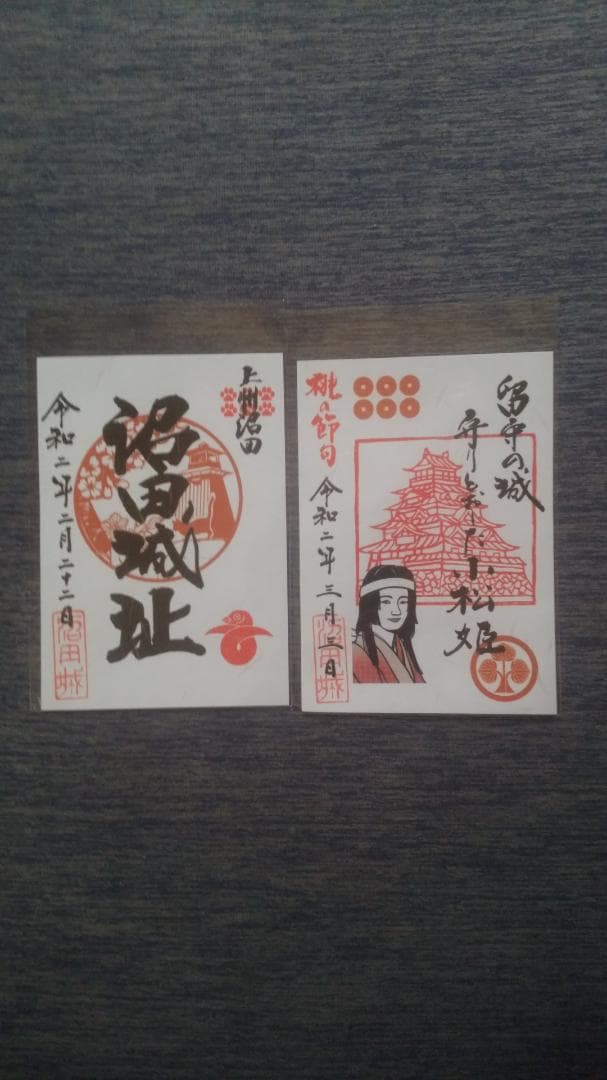 上州沼田
沼田城址
令和二年二月二十二日
沼田城
留守の城
守りとおした小松姫
桃の節句
令和二年三月三日
沼田城